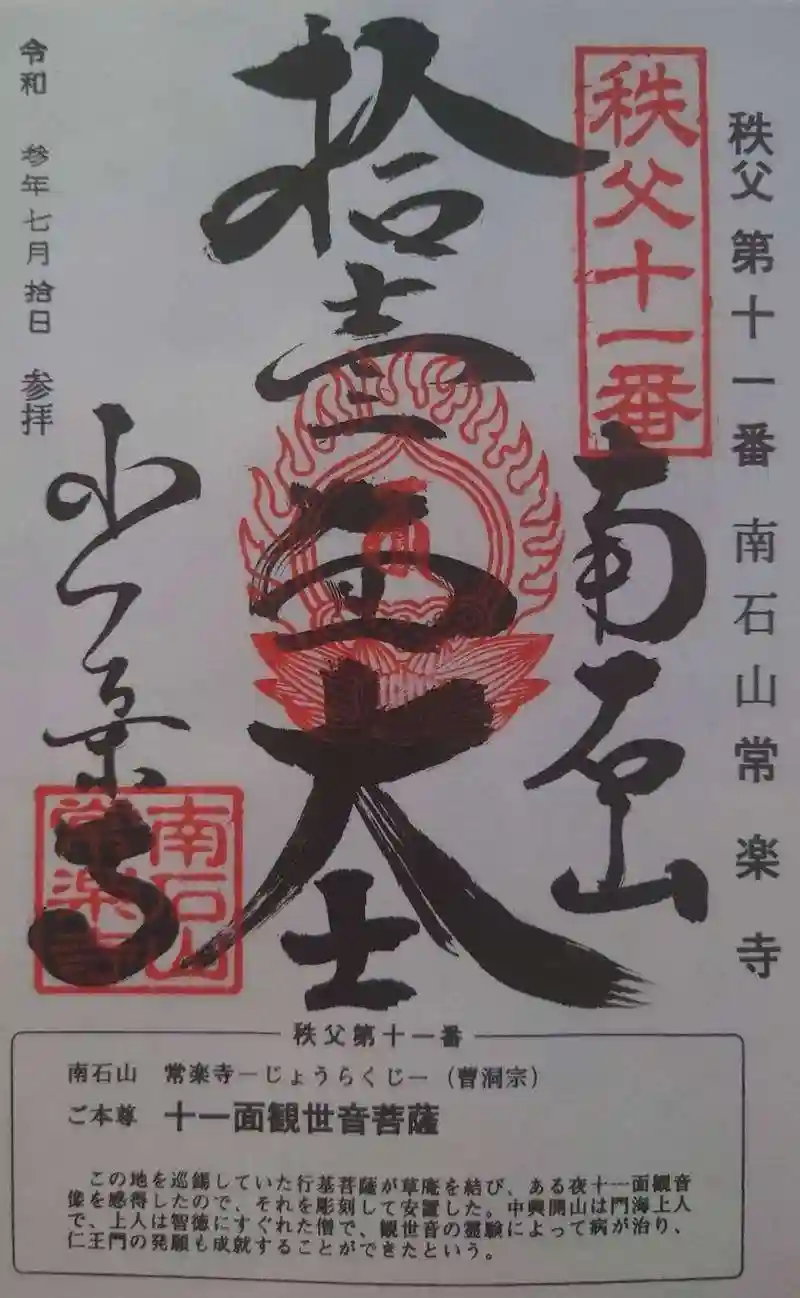 秩父 第十一番 南石山 常楽寺
秩父十一番
南石山
拾壱面大士
常楽寺
南石山
常楽寺
令和 参年七月拾日 参拝
秩父第十一番
南石山 常楽寺−じょうらくじ−（曹洞宗）
ご本尊 十一面観世音菩薩
この地を巡錫していた行基菩薩が草庵を結び、ある夜十一面観音
像を感得したので、それを彫刻して安置した。中興開山は門海上人
で、上人は智徳にすぐれた僧で、観世音の霊験によって病が治り、
仁王門の発願も成就することができたという。